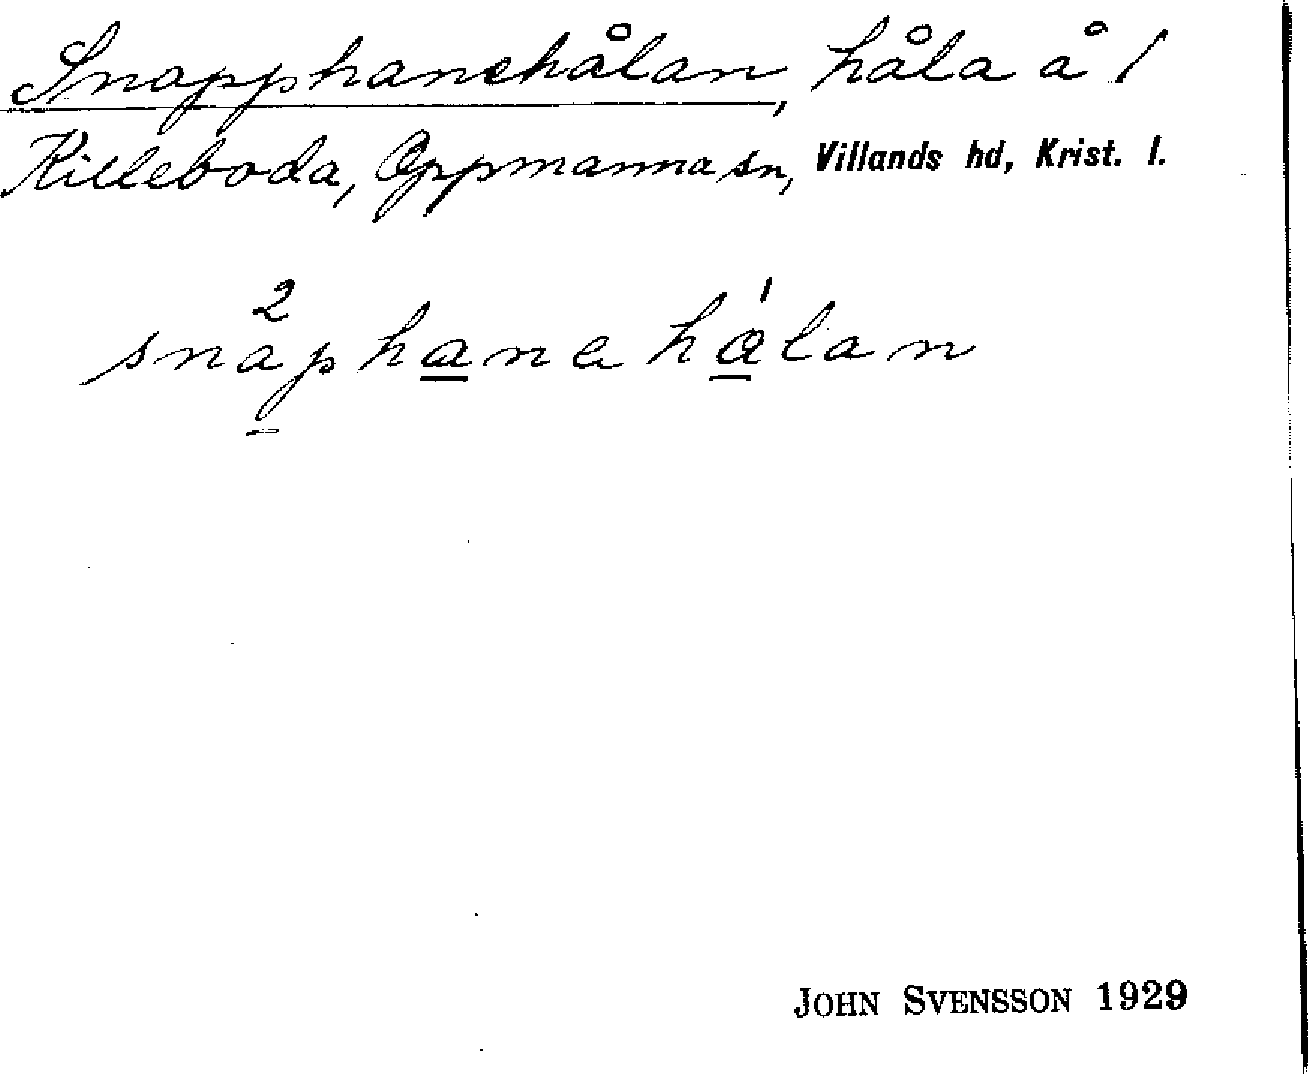 Snapphanehålan, håla å 1
Killeboda, Oppmanna sn, Villands hd, Krist. l.
2 1
snaphane hålan
JOHN SVENSSON 1929